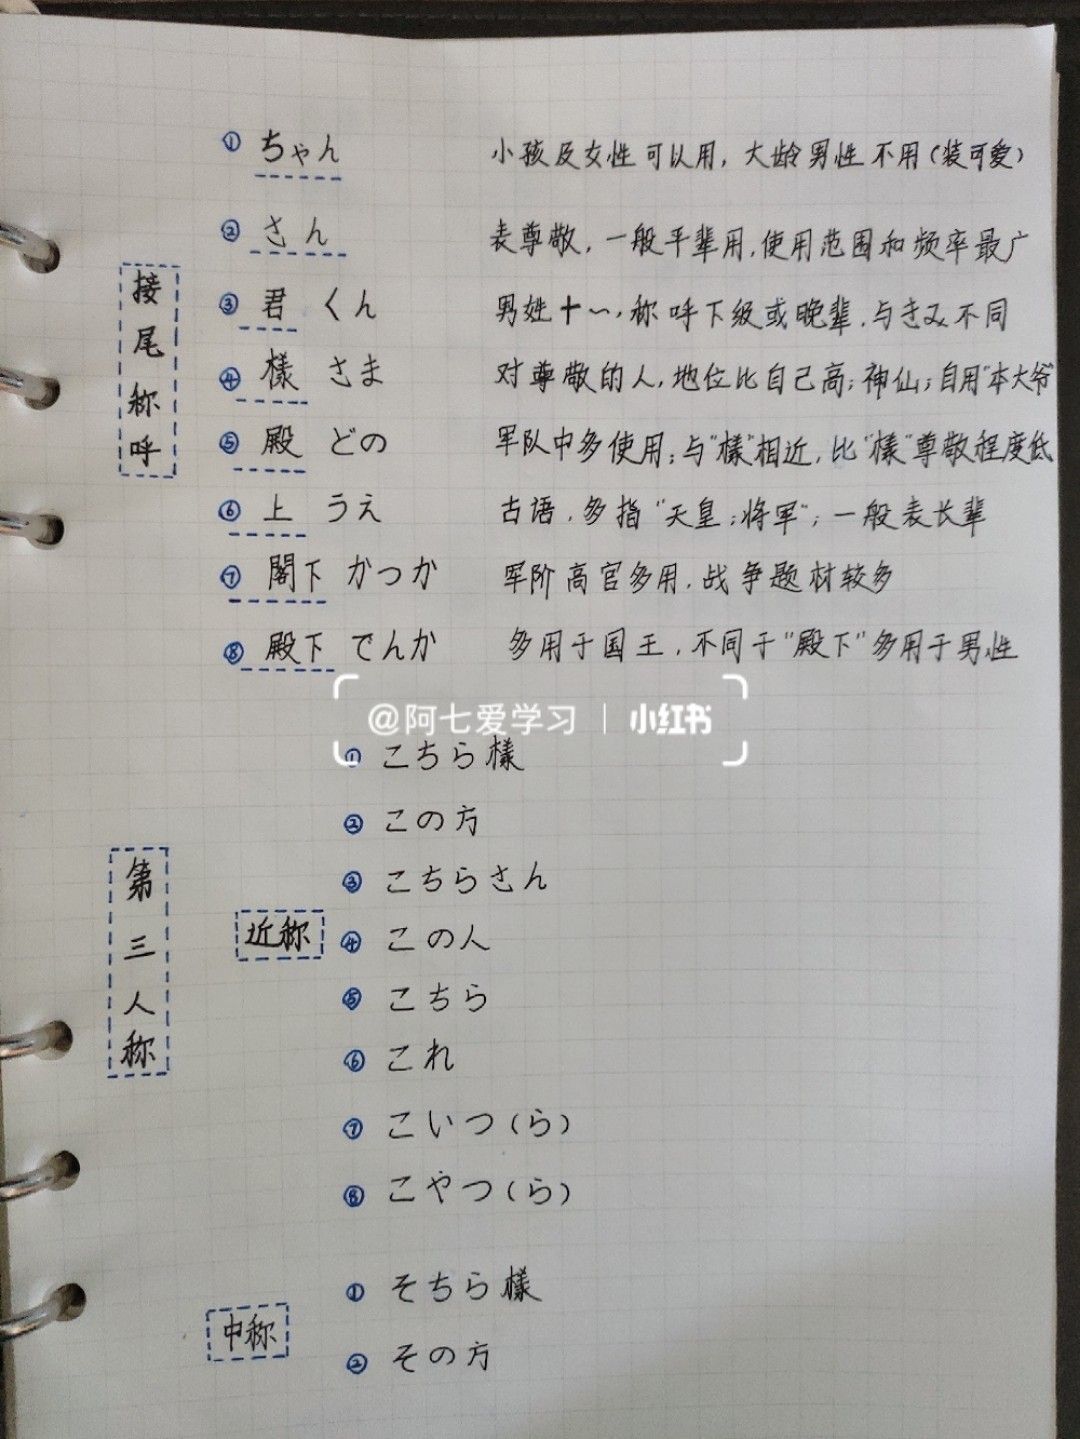 接尾称呼
① ちゃん 小孩及女性可以用，大龄男性不用（装可爱）
② さん 表尊敬，一般平辈用，使用范围和频率最广
③ 君 くん 男姓十～，称呼下级或晚辈，与きみ不同
④ 様 さま 对尊敬的人，地位比自己高；神仙；自用"本大爷"
⑤ 殿 どの 军队中多使用；与"様"相近，比"様"尊敬程度低
⑥ 上 うえ 古语，多指"天皇；将军"；一般表长辈
⑦ 閣下 かつか 军阶高官多用，战争题材较多
⑧ 殿下 でんか 多用于国王，不同于"殿下"多用于男性
@阿七爱学习 | 小红书
第三人称
近称
① こちら様
② この方
③ こちらさん
④ この人
⑤ こちら
⑥ これ
⑦ こいつ（ら）
⑧ こやつ（ら）
中称
① そちら様
② その方